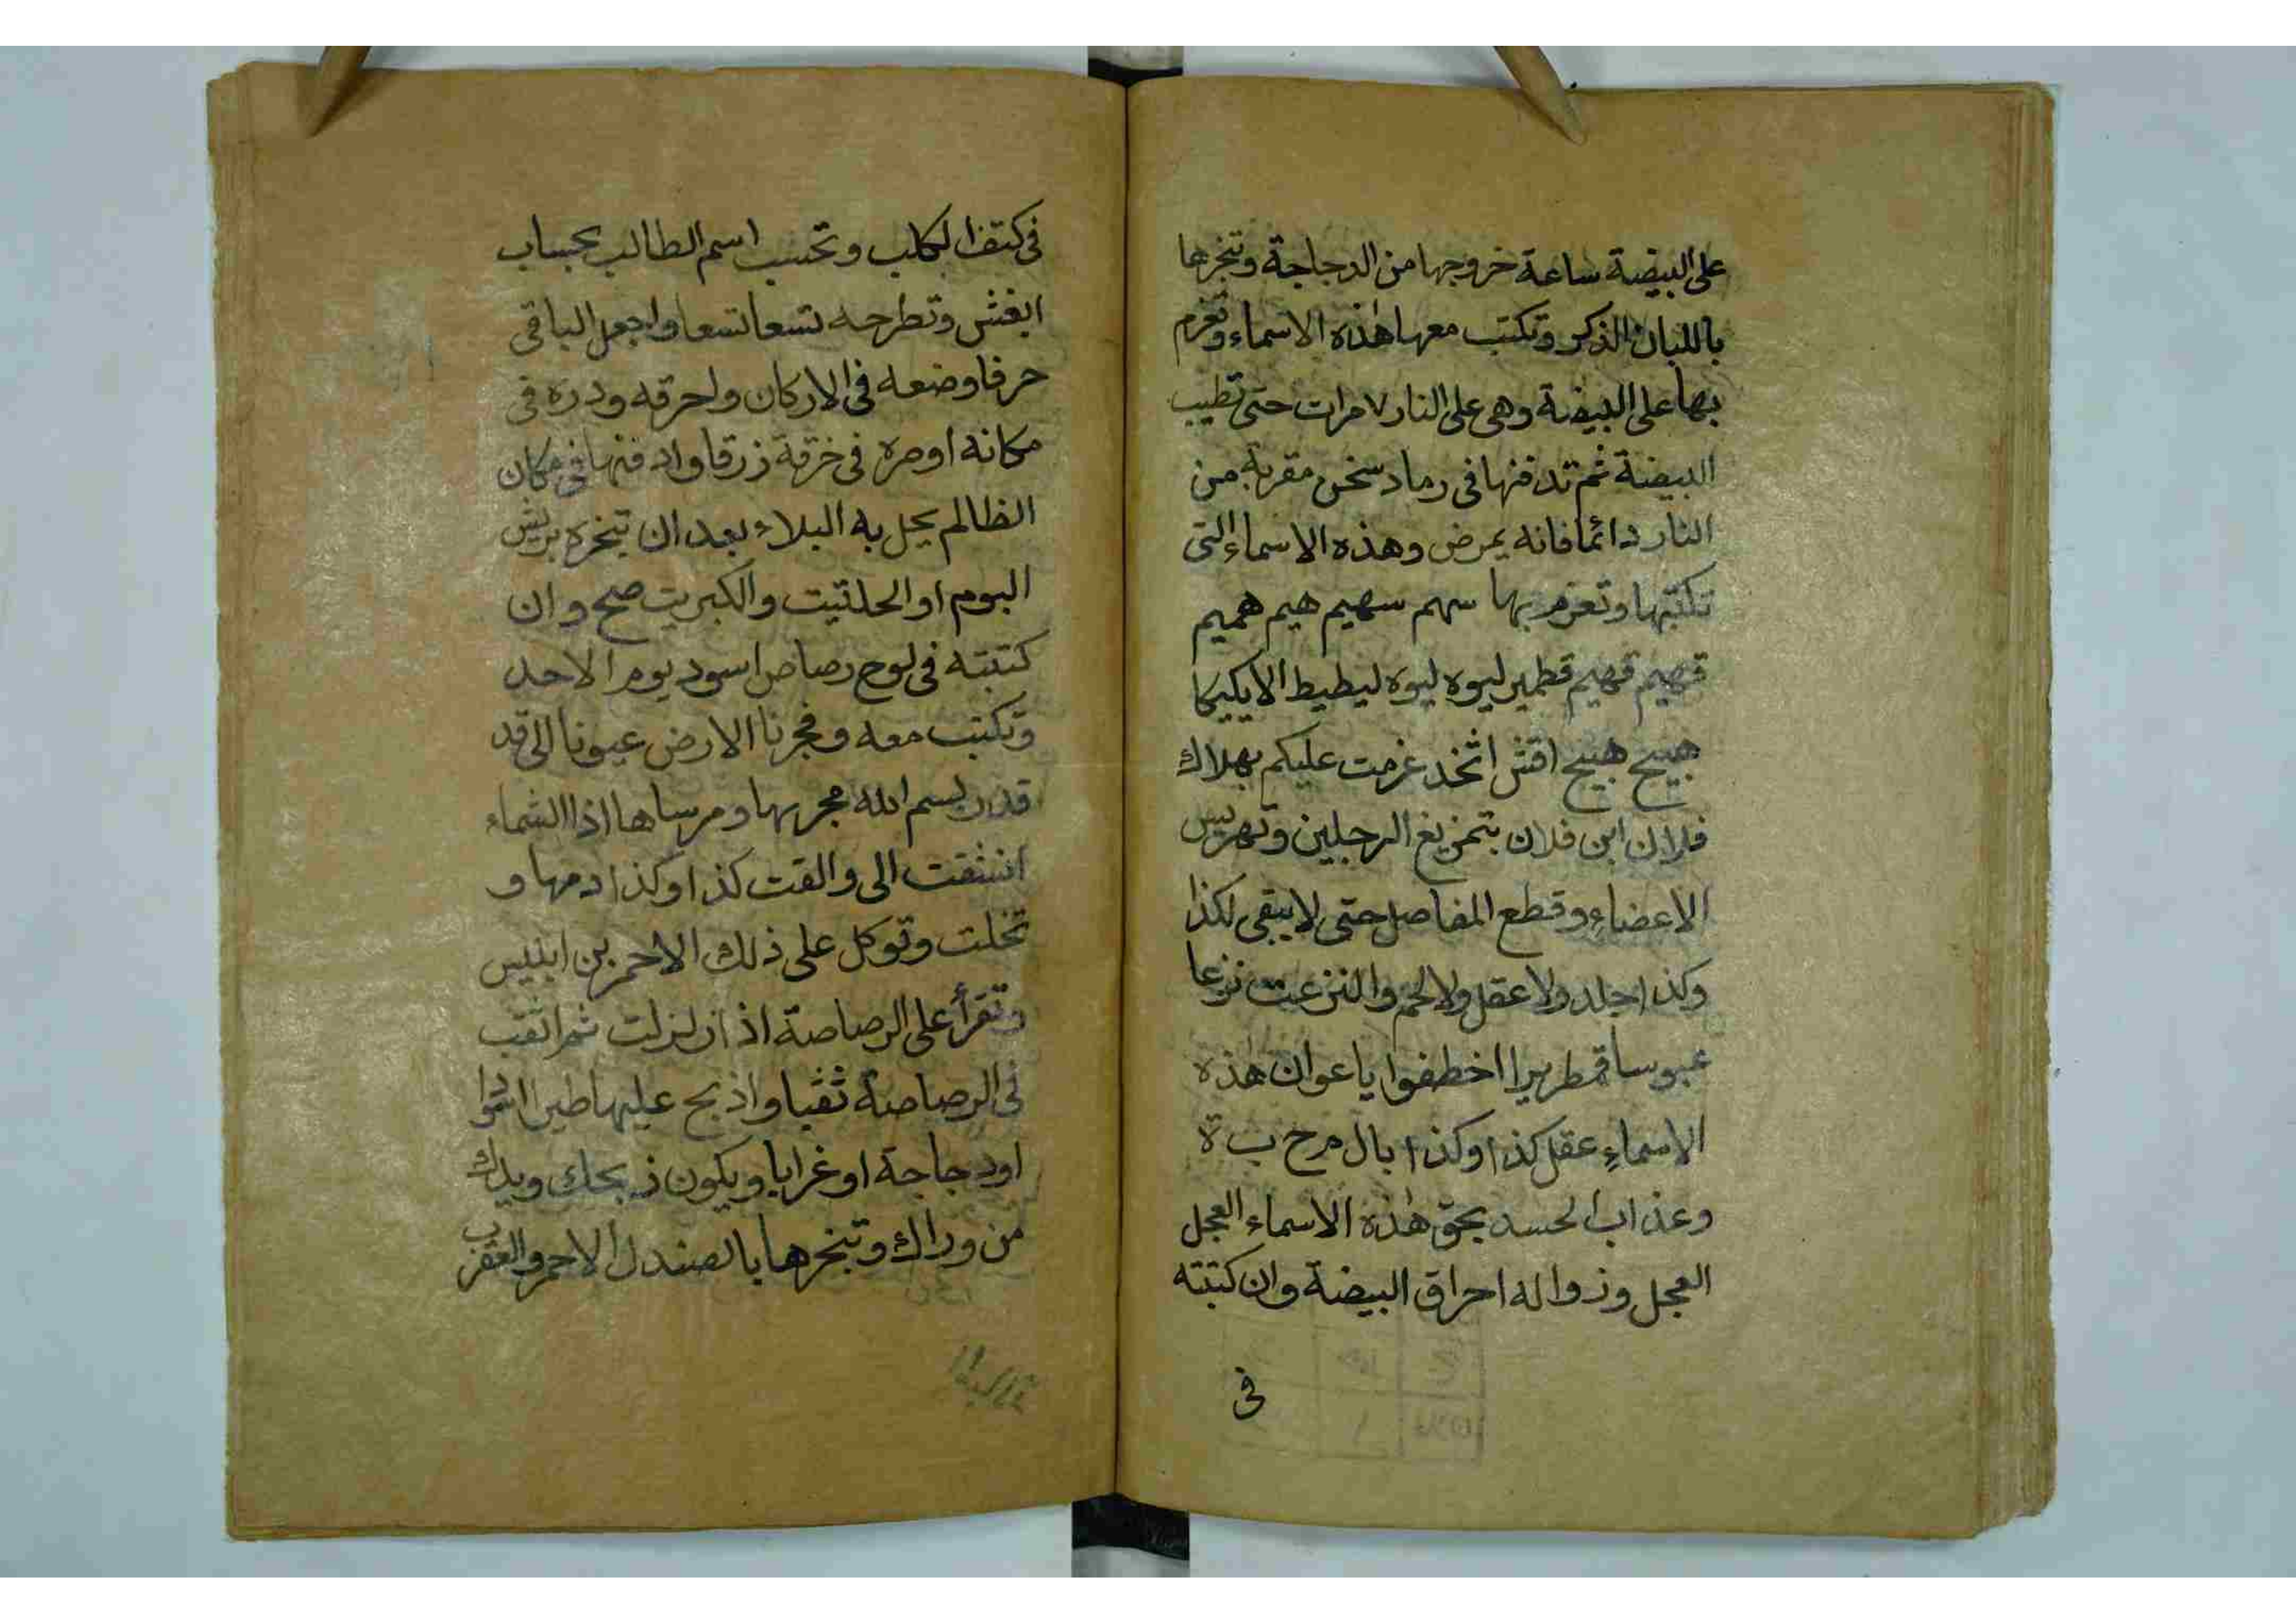 على البيضة ساعة خروجها من الدجاجة وتبخرها
باللبان الذكر وتكتب معها هذه الاسماء وتعزم
بها على البيضة وهى على النار ٧ مرات حتى تطيب
البيضة ثم تدفنها فى رماد سخن مقربة من
النار دائما فانه يمرض وهذه الاسماء التى
تكتبها وتعزم بها سهم سهيم هيم هميم
قهيم قهيم قطمير ليوه ليوه ليطيط الايكيكا
هييج هييج اقش اثخذ عزمت عليكم بهلاك
فلان ابن فلان بتمزيغ الرجلين وتهريس
الاعضاء وقطع المفاصل حتى لا يبقى لكذا
وكذا جلد ولا عقل ولا لحم والنزعت نزعا
عبوسا قمطريرا اخطفوا ياعوان هذه
الاسماء عقل كذا وكذا بال مرح ب ة
وعذاب الحسد بحق هذه الاسماء العجل
العجل وزواله احراق البيضة وان كتبته
فى
فى كتف الكلب وتحسب اسم الطالب بحساب
ايقش وتطرحه تسعا تسعا واجعل الباقى
حرفا وضعه فى الاركان واحرقه ودره فى
مكانه اوصره فى خرقة زرقا وادفنها فى مكان
الظالم يحل به البلاء بعد ان تبخره بريش
البوم او الحلتيت والكبريت صح وان
كتبته فى لوح رصاص اسود يوم الاحد
وتكتب معه وفجرنا الارض عيونا الى قد
قدر بسم الله مجريها ومرساها اذا السماء
انشقت الى والقت كذا وكذا دمها و
تخلت وتوكل على ذلك الاحمر بن ابليس
وتقرأ على الرصاصة اذا زلزلت ثم اثقب
فى الرصاصة ثقبا واذبح عليها طيرا
اودجاجة او غرابا ويكون ذبحك ويدك
من وراك وتبخرها بالصندل الاحمر والعقرب